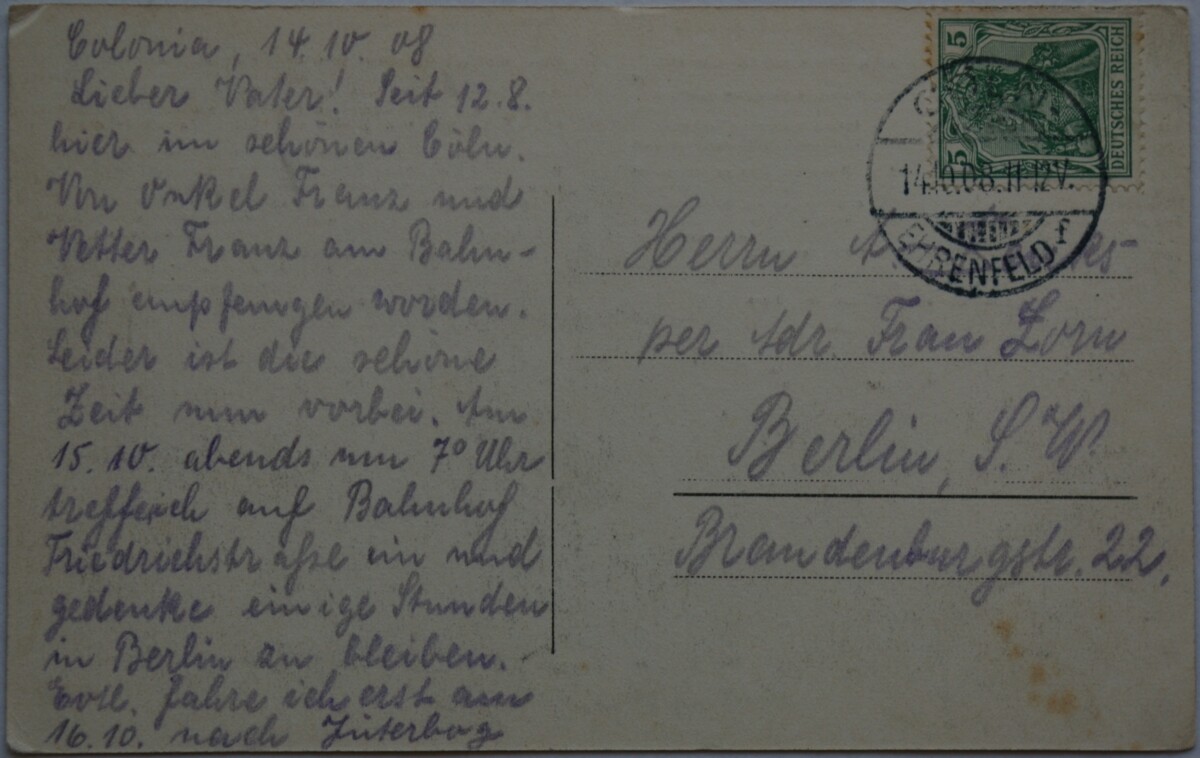 Colonia, 14.10.08
Lieber Vater! Seit 12.8.
hier im schönen Cöln.
Von Onkel Franz und
Vetter Franz am Bahn-
hof empfangen worden.
Leider ist die schöne
Zeit nun vorbei. Am
15.10. abends um 7º Uhr
treffe ich auf Bahnhof
Friedrichstraße ein und
gedenke einige Stunden
in Berlin zu bleiben.
Evtl. fahre ich erst am
16.10. nach Jüterbog
5
5
DEUTSCHES REICH
14.10.08.11-12V.
EHRENFELD f
Herrn
per Adr. Frau Zorn
Berlin, S.W.
Brandenburgstr. 22.